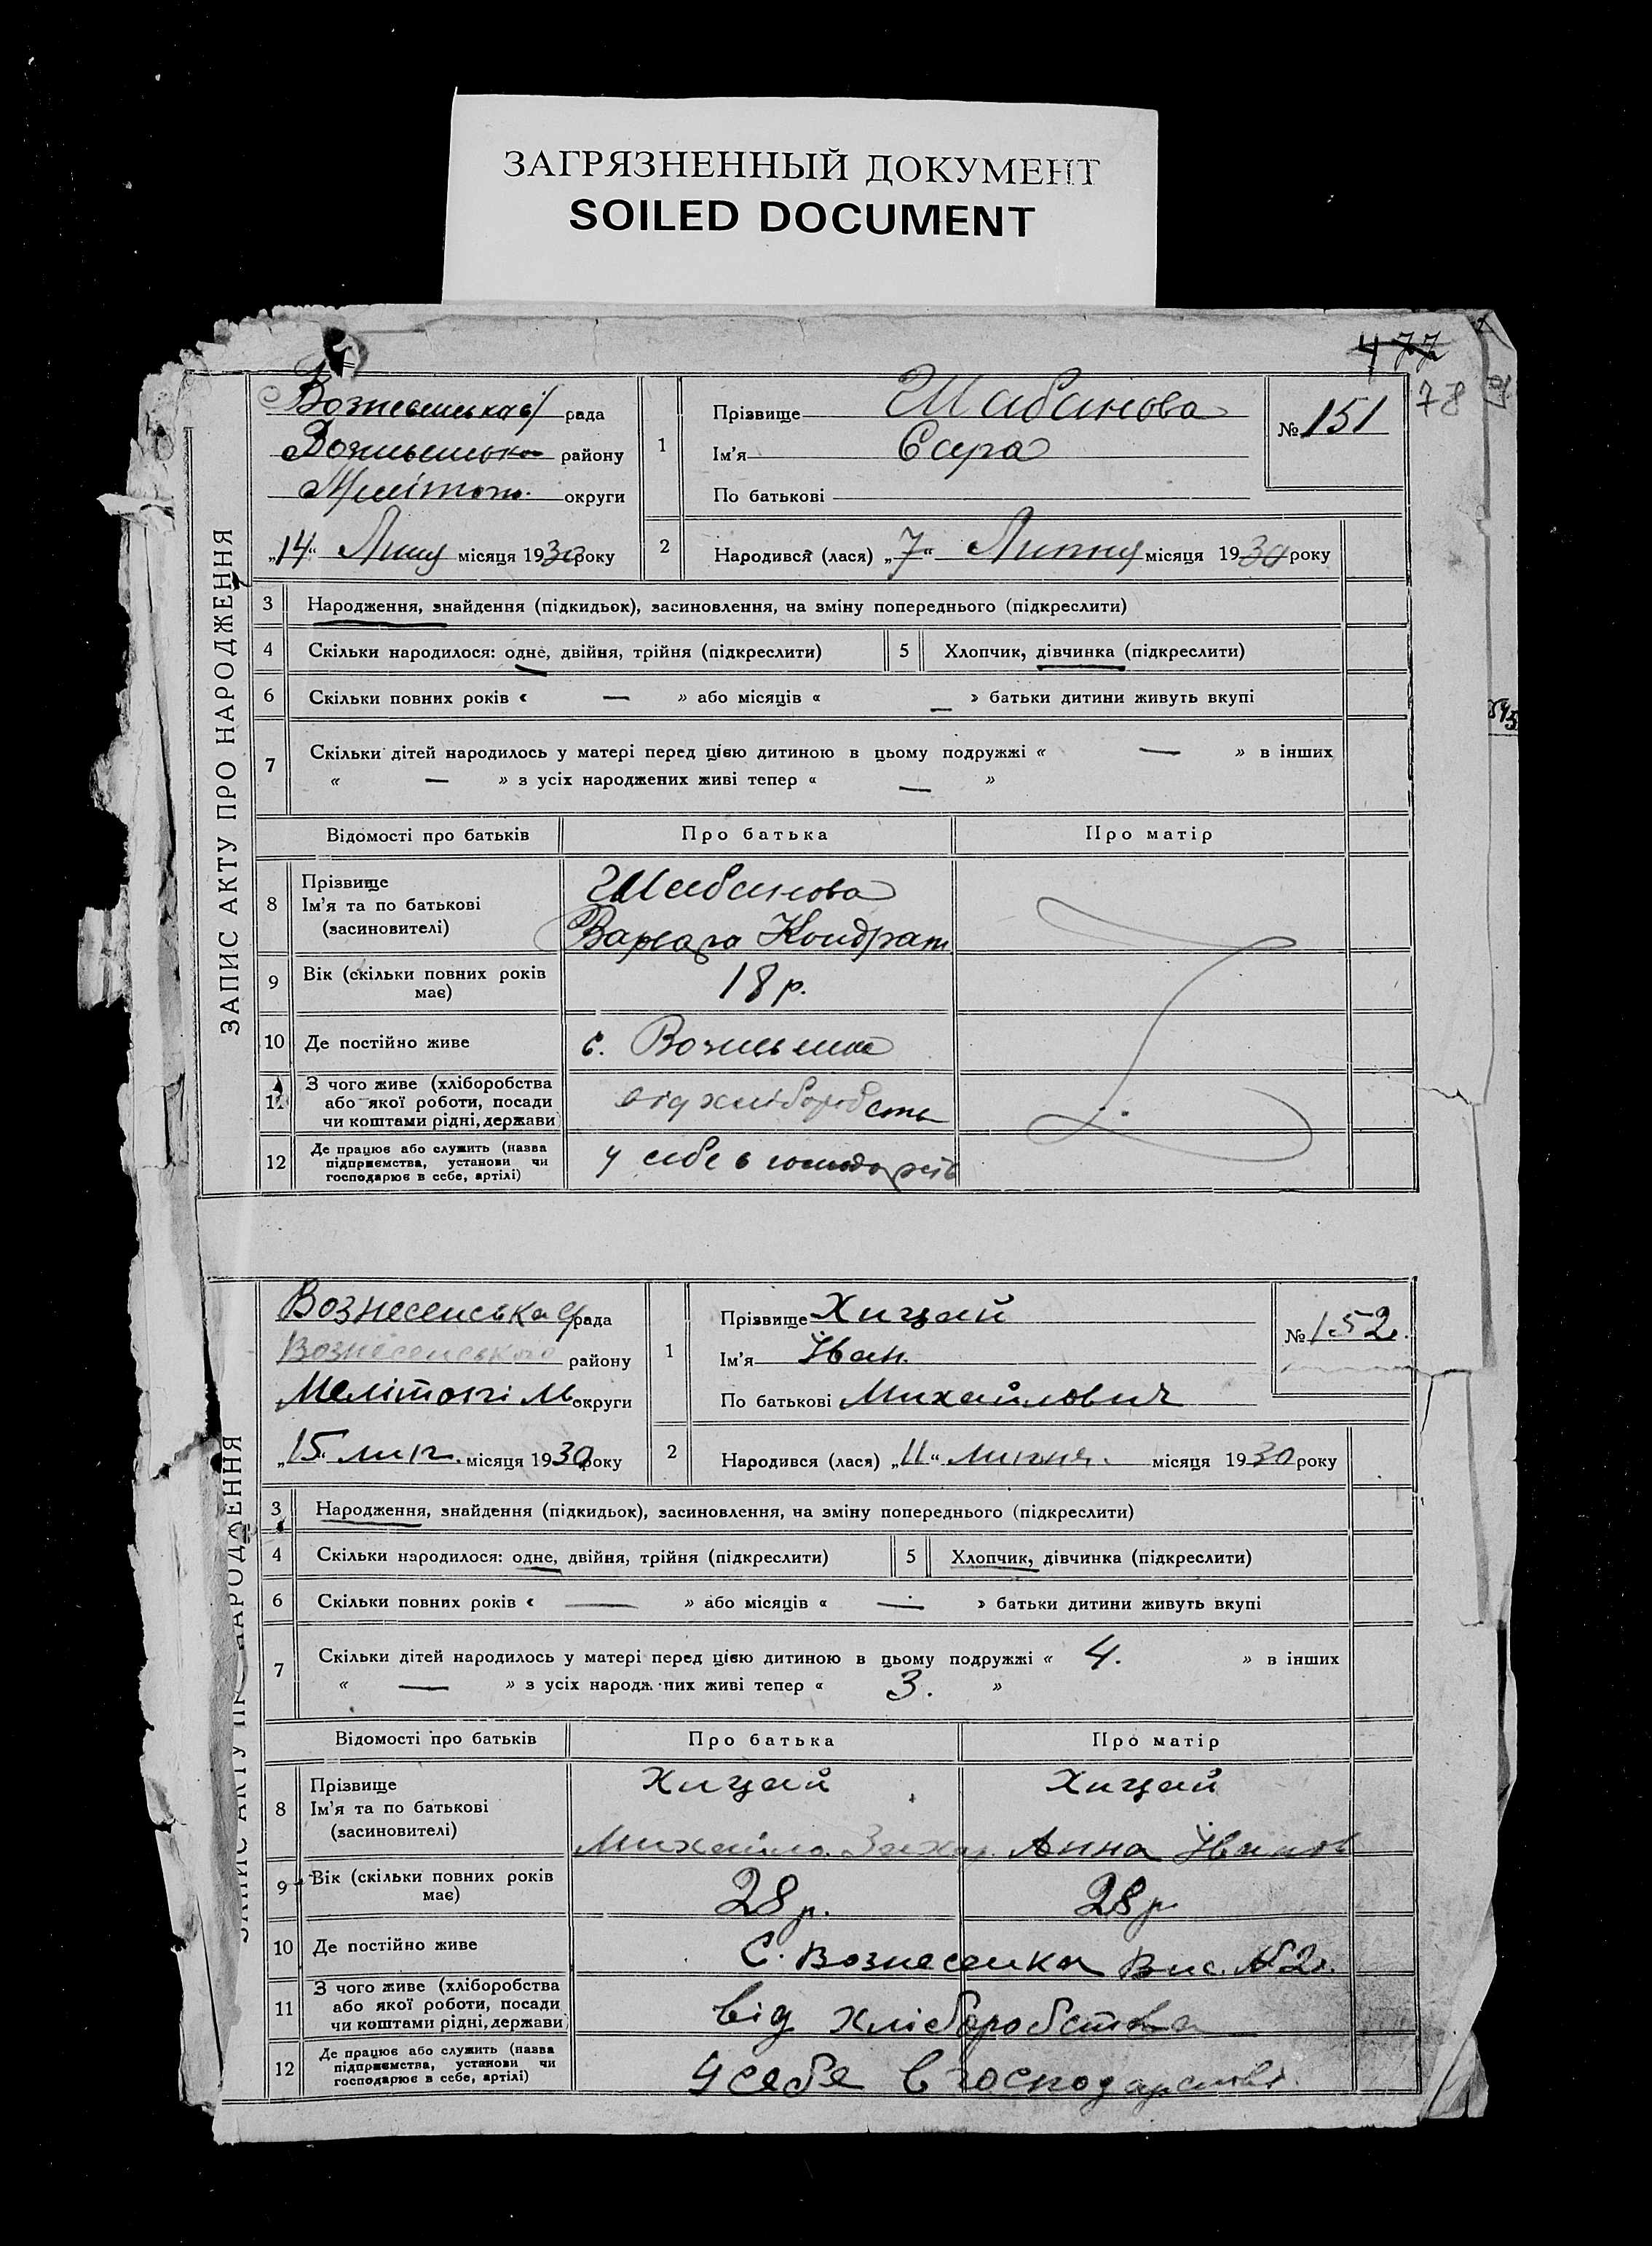 ЗАГРЯЗНЕННЫЙ ДОКУМЕНТ
SOILED DOCUMENT
477
78
ЗАПИС АКТУ ПРО НАРОДЖЕННЯ
рада
району
округи
„14“ місяця 1930 року
1 Прізвище Шабанова
Ім'я Сара
По батькові
№ 151
2 Народився (лася) „7“ Липня місяця 1930 року
3 Народження, знайдення (підкидьок), засиновлення, на зміну попереднього (підкреслити)
4 Скільки народилося: одне, двійня, трійня (підкреслити) 5 Хлопчик, дівчинка (підкреслити)
6 Скільки повних років « — » або місяців « — » батьки дитини живуть вкупі
7 Скільки дітей народилось у матері перед цією дитиною в цьому подружжі « — » в інших
« — » з усіх народжених живі тепер « — »
Відомості про батьків Про батька Про матір
8 Прізвище
Ім'я та по батькові
(засиновителі)
Шабанова
Варвара Кондрат
9 Вік (скільки повних років
має)
18 р.
10 Де постійно живе с.
11 З чого живе (хліборобства
або якої роботи, посади
чи коштами рідні, держави
від
12 Де працює або служить (назва
підприємства, установи чи
господарює в себе, артілі)
у себе в
ЗАПИС АКТУ НАРОДЖЕННЯ
Вознесенська рада
Вознесенського району
округи
„15“ лип. місяця 1930 року
1 Прізвище Хицай
Ім'я Іван.
По батькові Михайлович
№ 152
2 Народився (лася) „11“ липня. місяця 1930 року
3 Народження, знайдення (підкидьок), засиновлення, на зміну попереднього (підкреслити)
4 Скільки народилося: одне, двійня, трійня (підкреслити) 5 Хлопчик, дівчинка (підкреслити)
6 Скільки повних років « — » або місяців « — » батьки дитини живуть вкупі
7 Скільки дітей народилось у матері перед цією дитиною в цьому подружжі « 4. » в інших
« — » з усіх народж них живі тепер « 3. »
Відомості про батьків Про батька Про матір
8 Прізвище
Ім'я та по батькові
(засиновителі)
Хицай Хицай
Михайло Захар. Анна Іванов
9 Вік (скільки повних років
має)
28 р. 28 р.
10 Де постійно живе С. Вознесенка Вис. №2.
11 З чого живе (хліборобства
або якої роботи, посади
чи коштами рідні, держави)
від хліборобства
12 Де працює або служить (назва
підприємства, установи чи
господарює в себе, артілі)
У себе в господарстві.